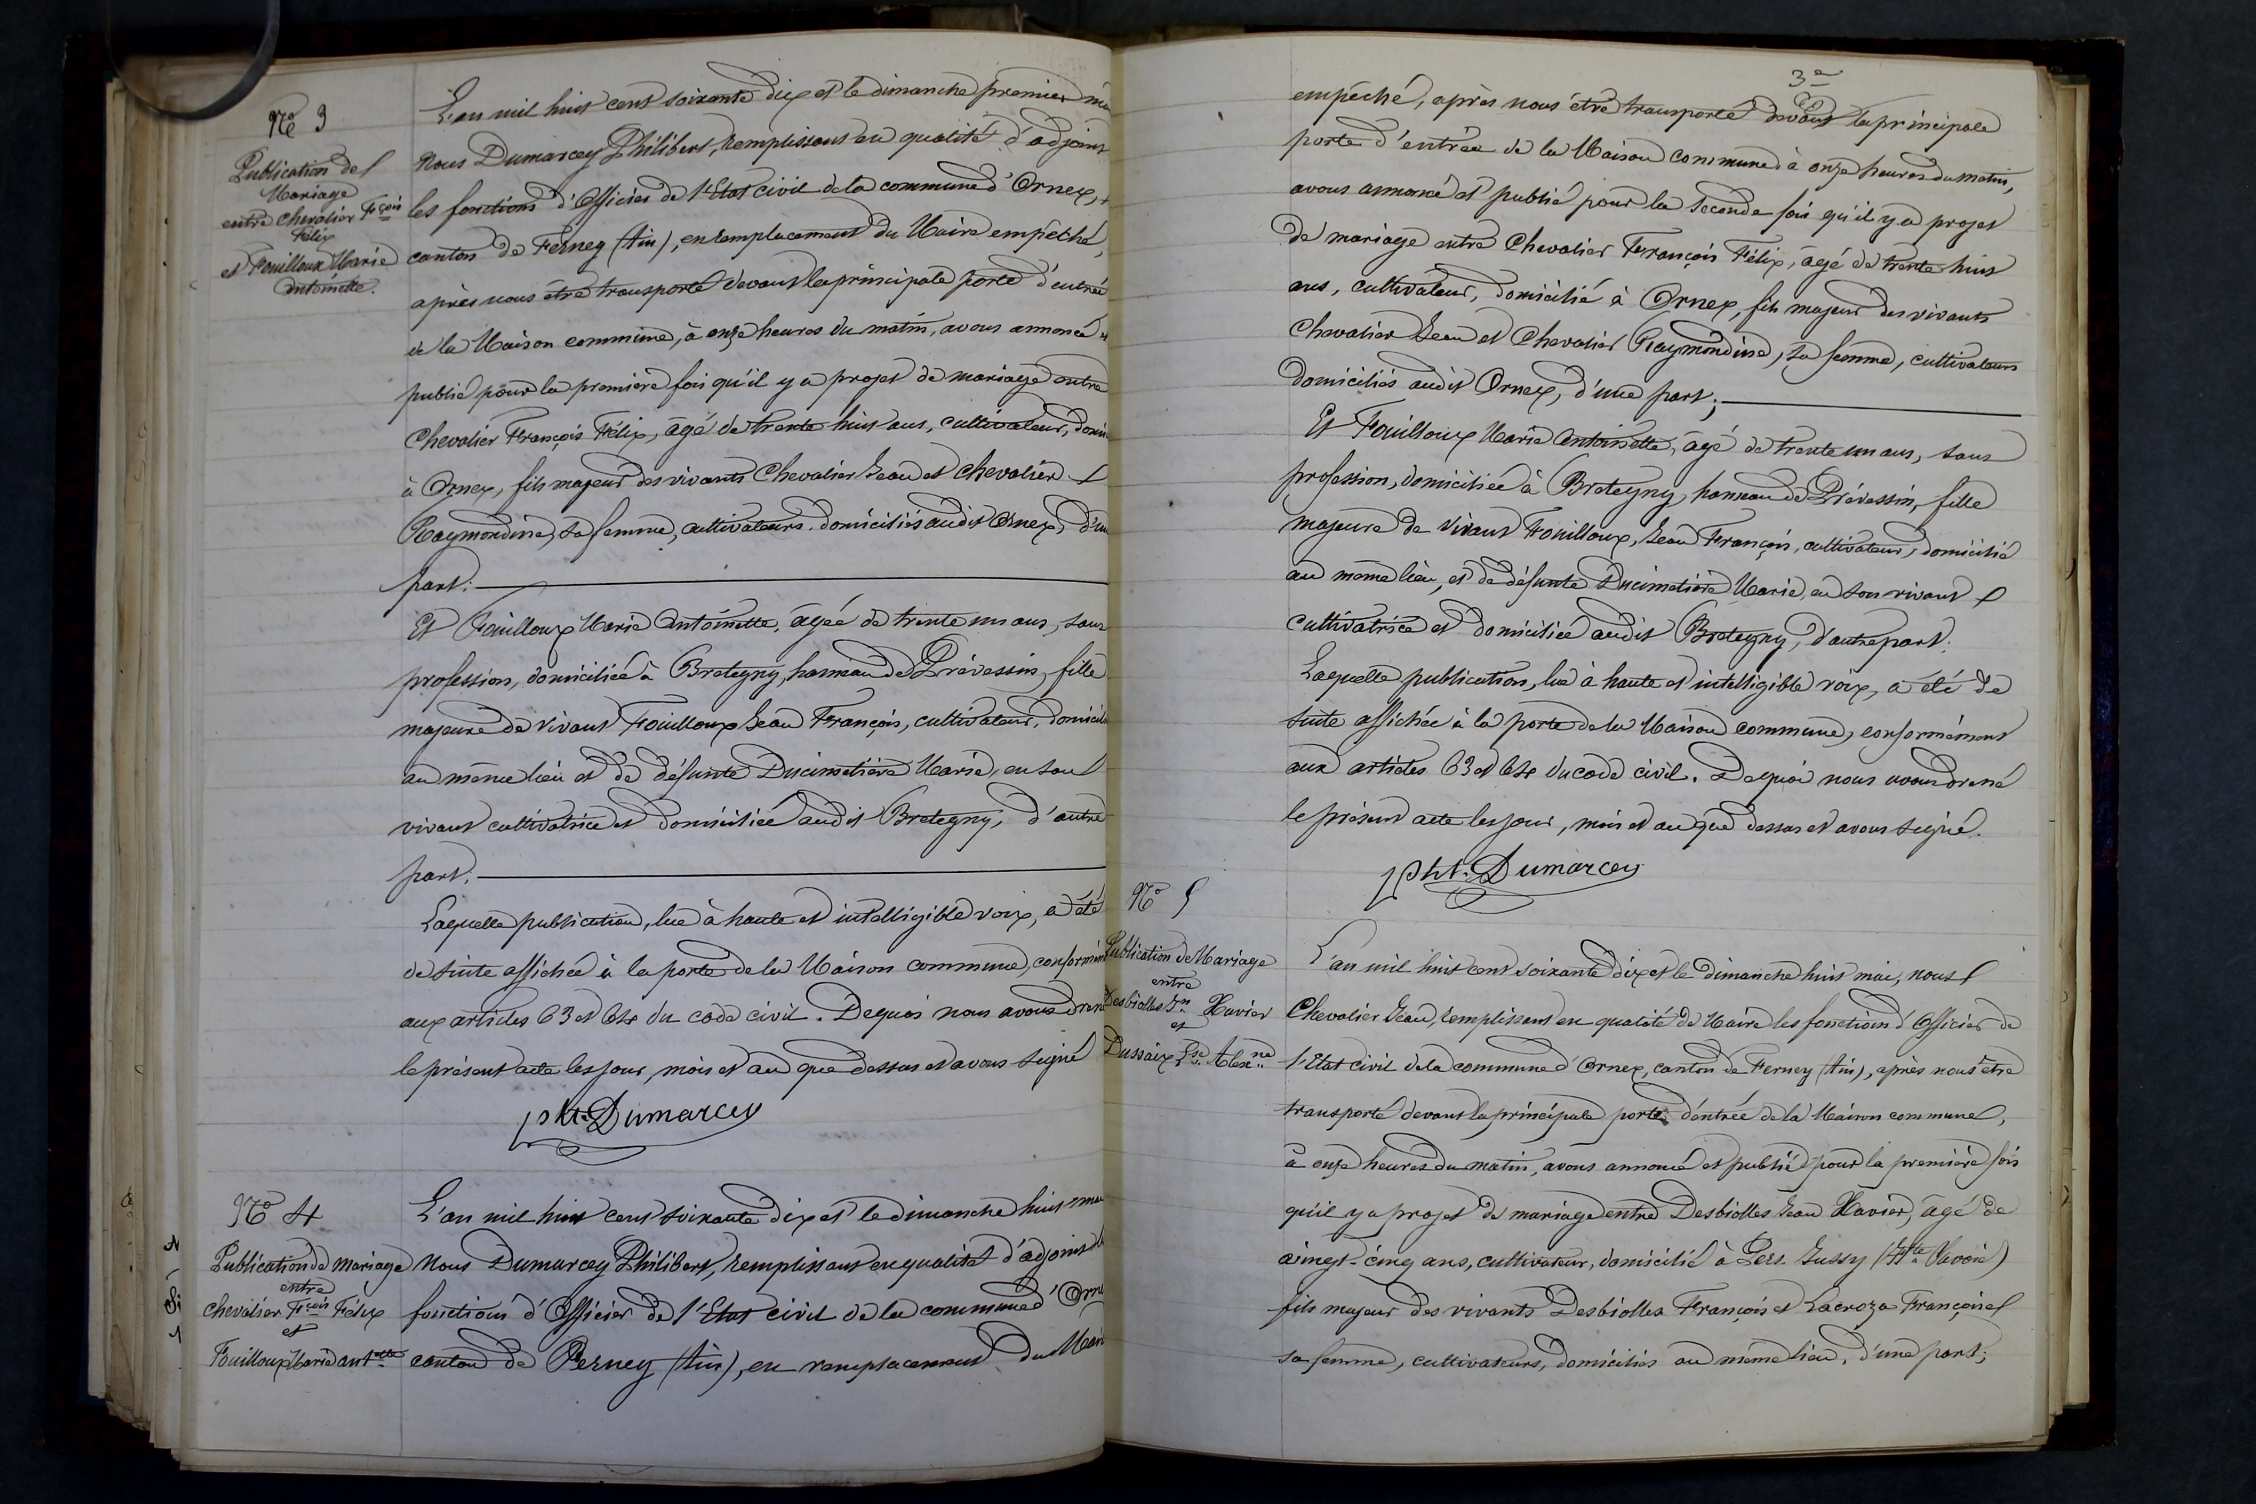 Nº 3
Publication de
Mariage
entre Chevalier Fçois
Félix
et Fouilloux Marie
Antoinette.
L'an mil huit cent soixante dix et le dimanche premier
nous Dumarcey Philibert, remplissant en qualité d'adjoint
les fonctions d'Officier de l'Etat civil de la commune d'Ornex,
canton de Ferney (Ain), en remplacement du Maire empêché,
après nous être transporté devant la principale porte d'entrée
de la Maison commune, à onze heures du matin, avons annoncé et
publié pour la première fois qu'il y a projet de mariage entre
Chevalier François Félix, âgé de trente huit ans, cultivateur,
à Ornex, fils majeur des vivants Chevalier Jean et Chevalier
Raymondine, sa femme, cultivateurs, domiciliés audit Ornex, d'une
part:
Et Fouilloux Marie Antoinette, âgée de trente un ans, sans
profession, domiciliée à Bretegny, hameau de Prévessin, fille
majeure de vivant Fouilloux Jean François, cultivateur, domicilié
au même lieu et de défunte Ducimetière Marie, en son
vivant cultivatrice et domiciliée audit Bretegny, d'autre
part.
Laquelle publication, lue à haute et intelligible voix, a été
de suite affichée à la porte de la Maison commune, conformément
aux articles 63 et 64 du code civil. De quoi nous avons dressé
le présent acte les jour, mois et an que dessus et avons signé
Pht. Dumarcey
Nº 4
Publication de mariage
entre
Chevalier Fçois Félix
et
Fouilloux Marie Antette
L'an mil huit cent soixante dix et le dimanche huit mai
nous Dumarcey Philibert, remplissant en qualité d'adjoint les
fonctions d'Officier de l'Etat civil de la commune d'Ornex
canton de Ferney (Ain), en remplacement du Maire
3e
empêché, après nous être transporté devant la principale
porte d'entrée de la Maison commune à onze heures du matin,
avons annoncé et publié pour la seconde fois qu'il y a projet
de mariage entre Chevalier François Félix, âgé de trente huit
ans, cultivateur, domicilié à Ornex, fils majeur des vivants
Chevalier Jean et Chevalier Raymondine, sa femme, cultivateurs
domiciliés audit Ornex, d'une part;
Et Fouilloux Marie Antoinette, âgé de trente un ans, sans
profession, domiciliée à Bretegny, hameau de Prévessin, fille
majeure de vivant Fouilloux, Jean François, cultivateur, domicilié
au même lieu, et de défunte Ducimetière Marie, en son vivant
cultivatrice et domiciliée audit Bretegny, d'autre part.
Laquelle publication, lue à haute et intelligible voix, a été de
suite affichée à la porte de la Maison commune, conformément
aux articles 63 et 64 du code civil. De quoi nous avons dressé
le présent acte les jour, mois et an que dessus et avons signé.
Pht. Dumarcey
Nº 5
Publication de Mariage
entre
Desbiolles Jn Xavier
et
Dussaix Lse Alexne
L'an mil huit cent soixante dix et le dimanche huit mai, nous
Chevalier Jean, remplissant en qualité de Maire les fonctions d'Officier de
l'Etat civil de la commune d'Ornex, canton de Ferney (Ain), après nous être
transporté devant la principale porte d'entrée de la Maison commune,
à onze heures du matin, avons annoncé et publié pour la première fois
qu'il y a projet de mariage entre Desbiolles Jean Xavier, âgé de
vingt-cinq ans, cultivateur, domicilié à Pers-Jussy (Hte Savoie)
fils majeur des vivants Desbiolles François et Lacroza Françoise
sa femme, cultivateurs, domiciliés au même lieu, d'une part;